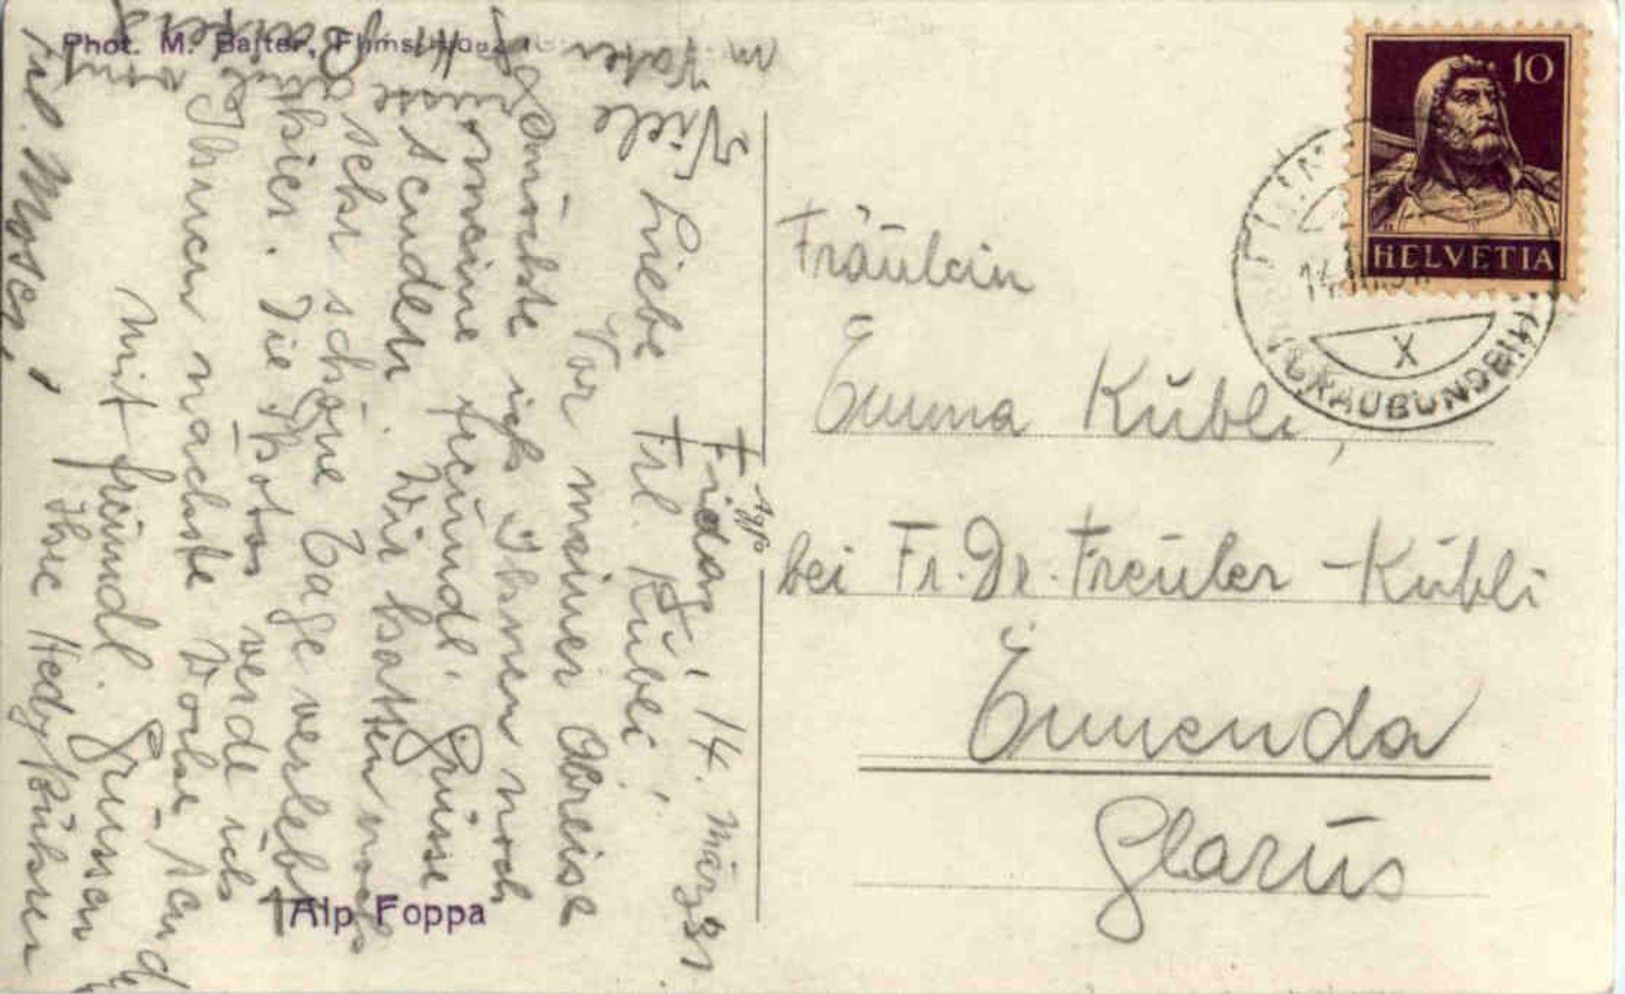 Phot. M. Balter, Flims
10
HELVETIA
GRAUBÜNDEN
X
Fräulein
Emma Kübli,
bei Fr. Dr. Freuler-Kübli
Ennenda
Glarus
Alp Foppa
14. März 31
Liebe Frl. Kübli,
Vor meiner Abreise
möchte ich Ihnen noch
meine freundl. Grüsse
senden. Wir hatten noch
sehr schöne Tage verlebt
hier. Die Photos werde ich
Ihnen nächste Woche senden
mit freundl. Grüssen
Ihre Hedy
Frl. Moser,
Viele
Grüsse